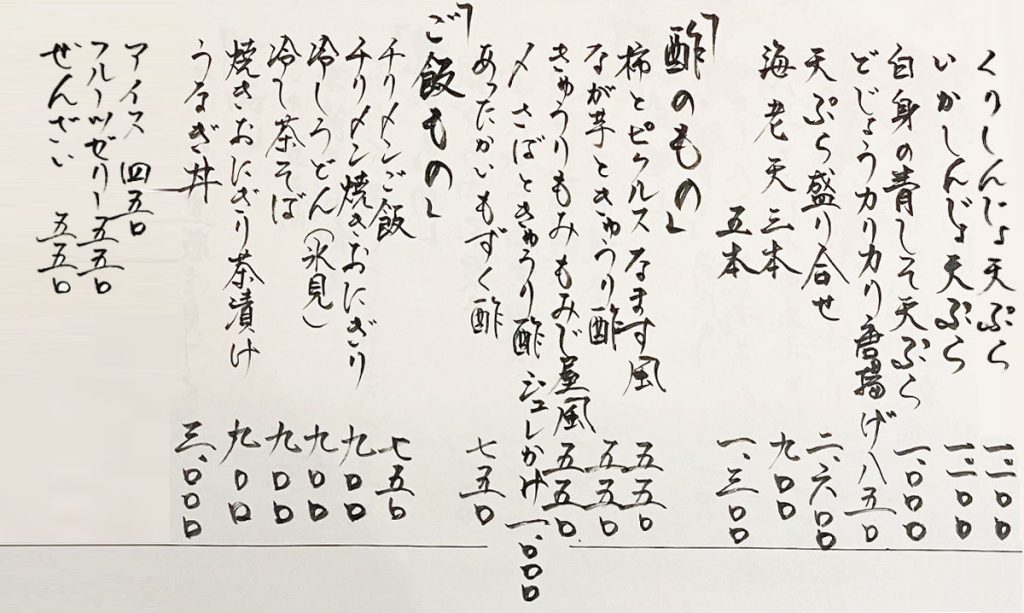 くりしんじょ天ぷら 一、一〇〇
いかしんじょ天ぷら 一、一〇〇
白身の青しそ天ぷら 一、〇〇〇
どじょうカリカリ唐揚げ 八五〇
天ぷら盛り合せ 二、六〇〇
海老天 三本 九〇〇
五本 一、三〇〇
「酢のもの」
柿とピクルスなます風 五五〇
なが芋ときゅうり酢 五五〇
きゅうりもみもみじ屋風 五五〇
〆さばときゅうり酢ジュレかけ 一、〇〇〇
あったかいもずく酢 七五〇
「ご飯もの」
チリメンご飯 七五〇
チリメン焼きおにぎり 九〇〇
冷しうどん(氷見) 九〇〇
冷し茶そば 九〇〇
焼きおにぎり茶漬け 九〇〇
うなぎ丼 三、〇〇〇
アイス 四五〇
フルーツゼリー 五五〇
ぜんざい 五五〇